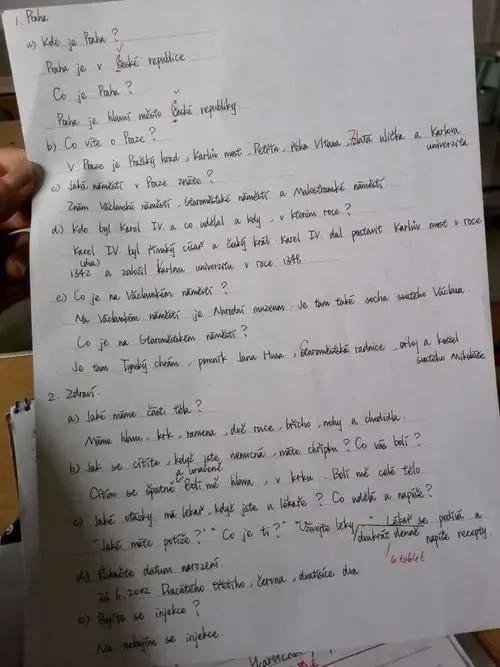 1. Praha
a) Kde je Praha?
Praha je v České republice
Co je Praha?
Praha je hlavní město České republiky
b) Co víte o Praze?
V Praze je Pražský hrad, Karlův most, Petřín, řeka Vltava, Zlatá ulička a Karlova
univerzita
c) Jaká náměstí v Praze znáte?
Znám Václavské náměstí, Staroměstské náměstí a Malostranské náměstí
d) Kdo byl Karel IV. a co udělal a kdy, v kterém roce?
Karel IV. byl římský císař a český král. Karel IV. dal postavit Karlův most v roce
1342 a založil Karlovu univerzitu v roce 1348
e) Co je na Václavském náměstí?
Na Václavském náměstí je Národní muzeum. Je tam také socha svatého Václava
Co je na Staroměstském náměstí?
Je tam Týnský chrám, pomník Jana Husa, Staroměstská radnice, orloj a kostel
svatého Mikuláše
2. Zdraví
a) Jaké máme části těla?
Máme hlavu, krk, ramena, dvě ruce, břicho, nohy a chodidla.
b) Jak se cítíte, když jste nemocná, máte chřipku? Co vás bolí?
a unaveně
Cítím se špatně Bolí mě hlava, v krku. Bolí mě celé tělo
c) Jaké otázky má lékař, když jste u lékaře? Co udělá a napíše?
"Jaké máte potíže?" "Co je ti?" "Užívejte léky" Lékař se podívá a
dvakrát denně napíše recepty.
6 tablet
d) datum narození.
22.6.2002 Dvacátého třetího, června, dvatisíce dva
e) Bojíte se injekce?
Ne, nebojím se injekce.